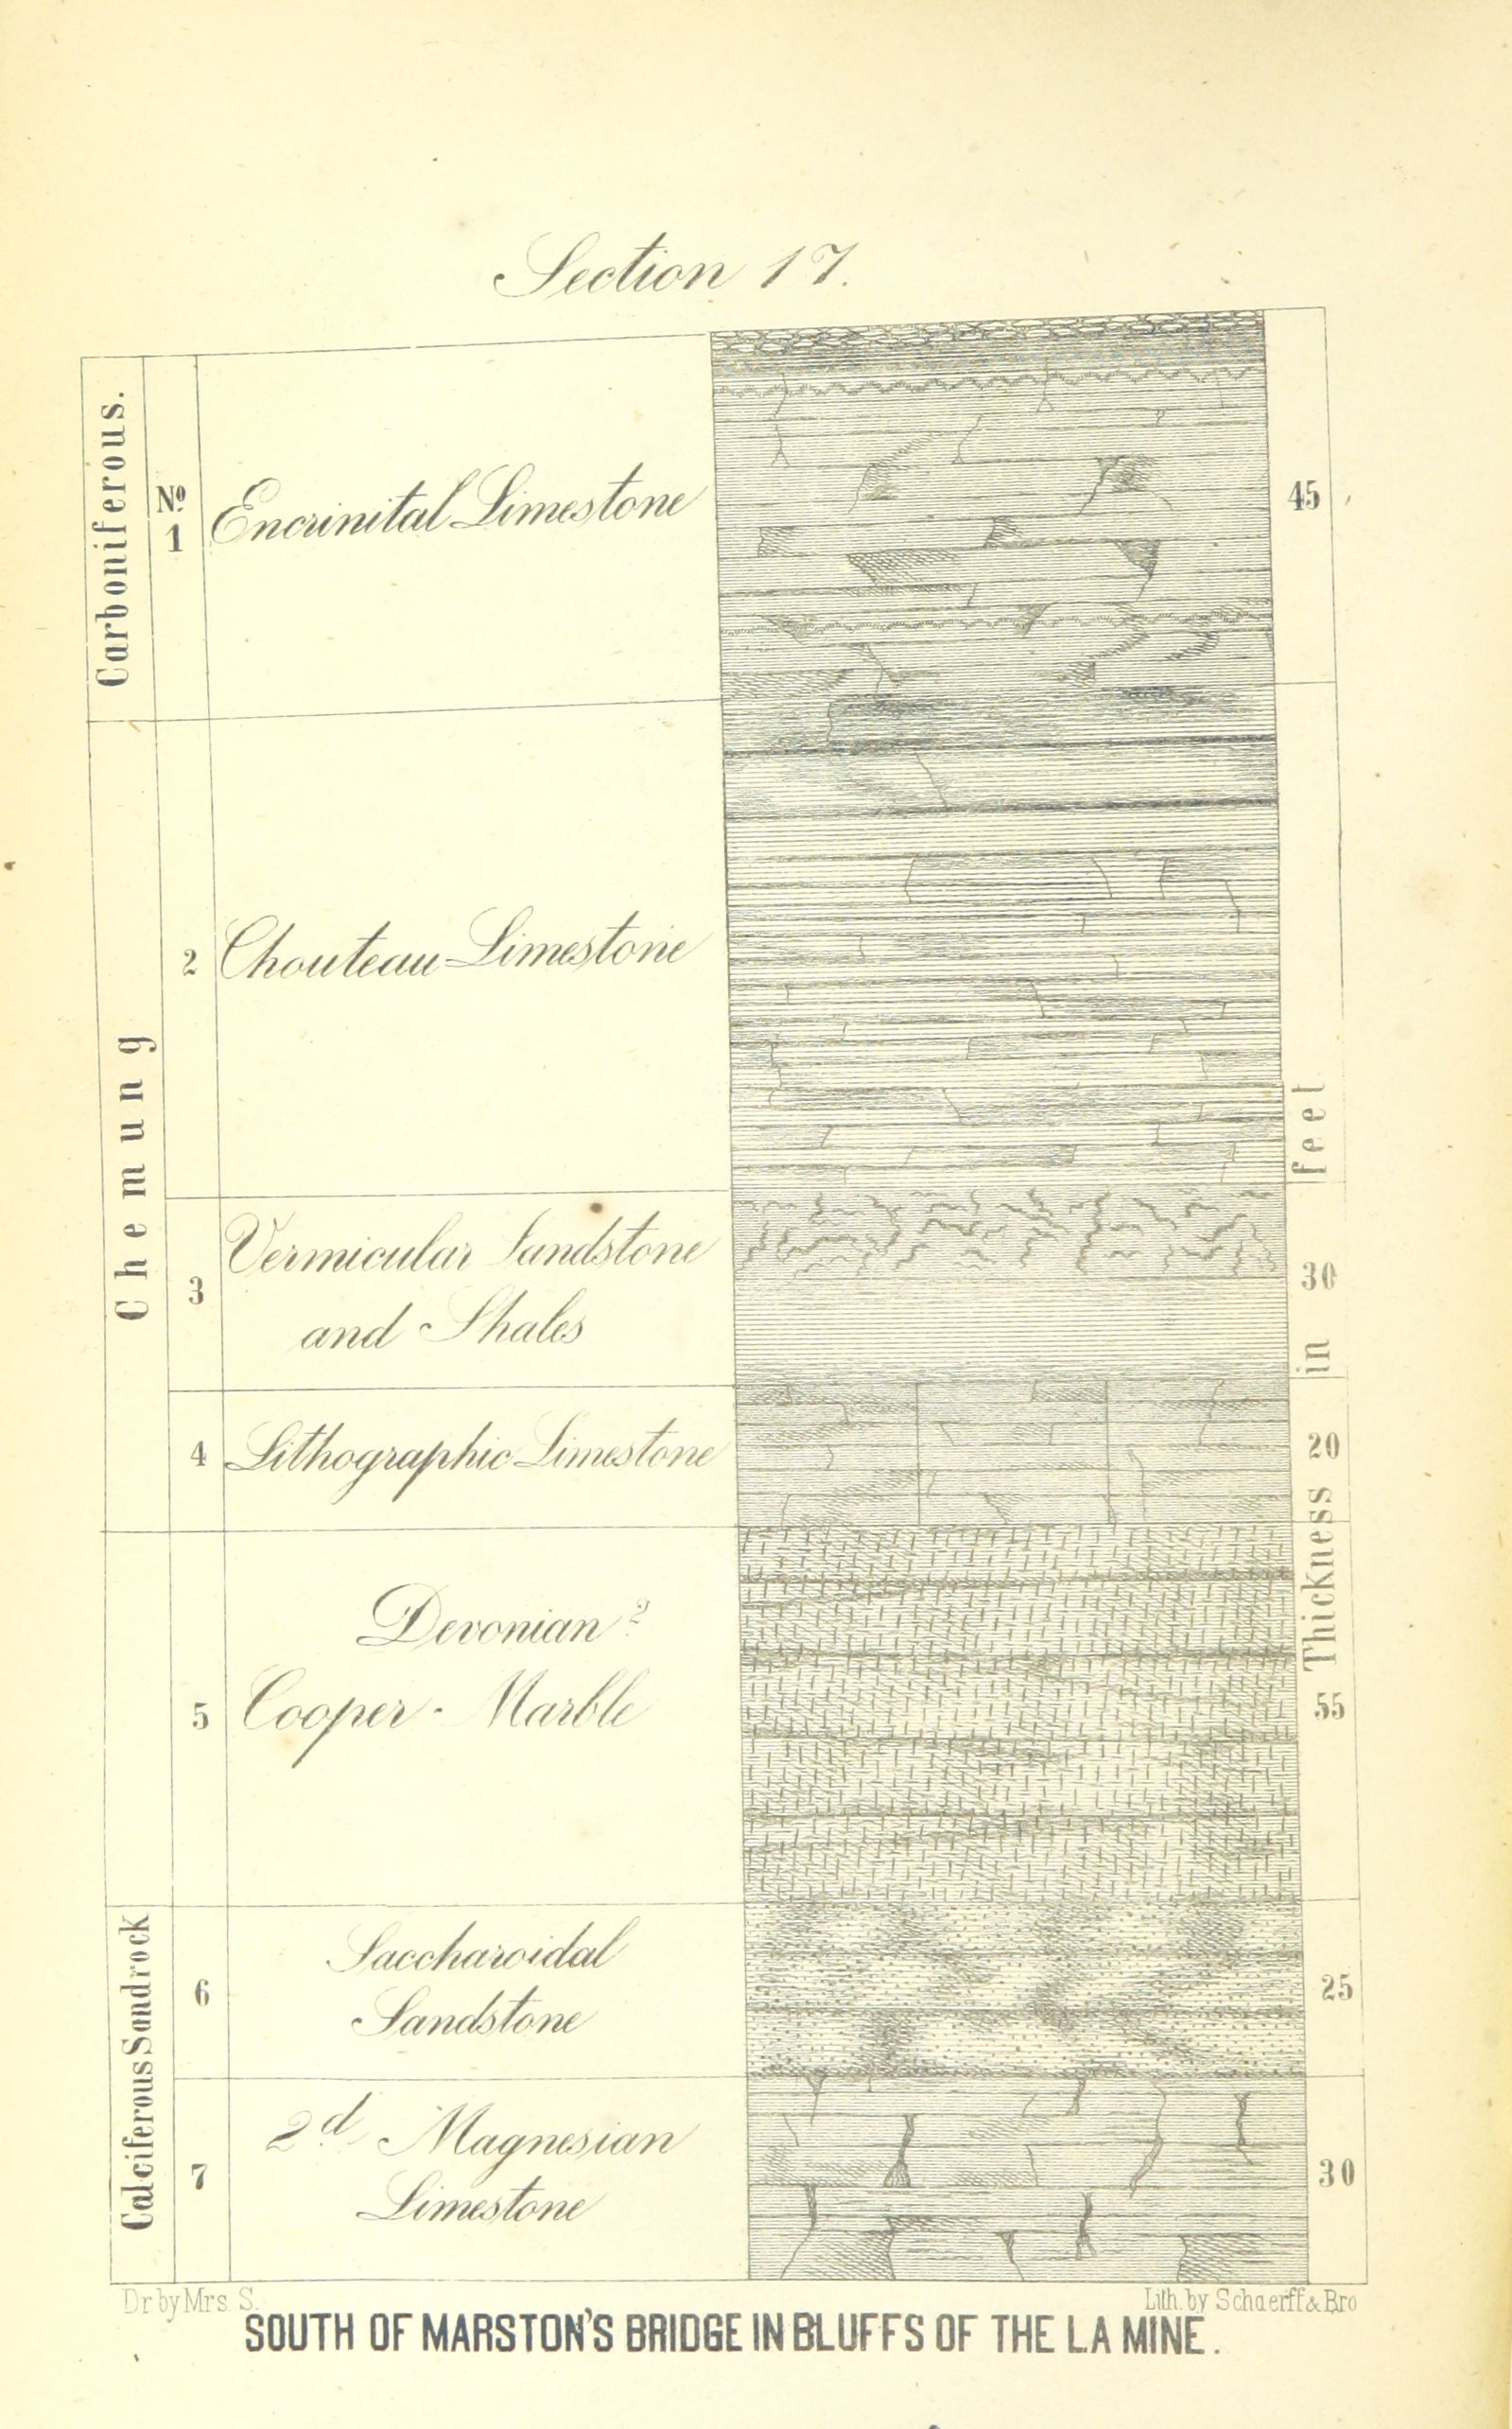 Section 17.
Carboniferous.
Nº 1
Encrinital Limestone
45
Chemung
2
Chouteau Limestone
3
Vermicular Sandstone
and Shales
30
4
Lithographic Limestone
20
Thickness in feet
5
Devonian ?
Cooper - Marble
55
Calciferous Sondrock
6
Saccharoidal
Sandstone
25
7
2d. Magnesian
Limestone
30
Dr by Mrs. S.
Lith. by Schaerff & Bro
SOUTH OF MARSTON'S BRIDGE IN BLUFFS OF THE LA MINE.